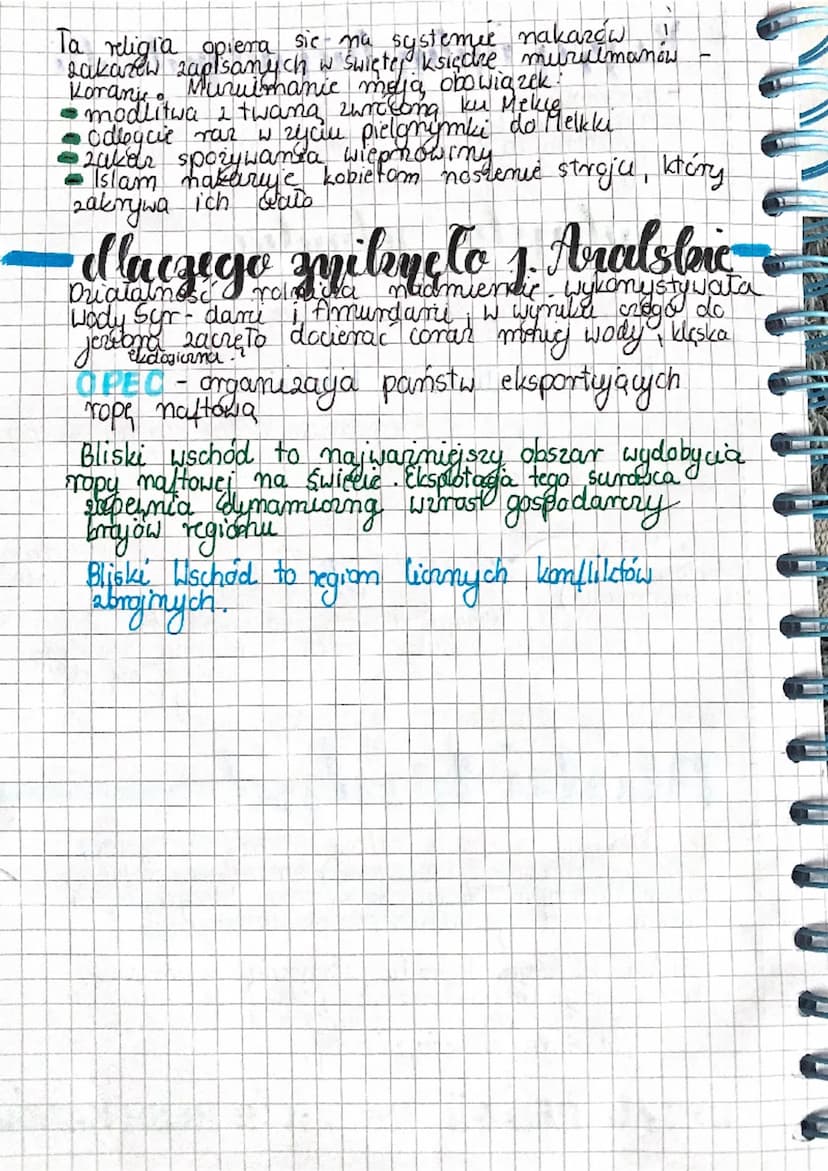 Ta religia opiera się na systemie nakazów i
zakazów zapisanych w świętej księdze muzułmanów -
Koranie. Muzułmanie mają obowiązek:
- modlitwa z twarzą zwróconą ku Mekce
- odbycie raz w życiu pielgrzymki do Mekki
- zakaz spożywania wieprzowiny
- Islam nakazuje kobietom noszenie stroju, który
zakrywa ich ciało
dlaczego znikneło j. Aralskie
Działalność rolnicza nadmiernie wykorzystywała
wody Syr-darii i Amudarii, w wyniku czego do
jeziora zaczęło docierać coraz mniej wody, klęska
ekologiczna
OPEC - organizacja państw eksportujących
ropę naftową
Bliski wschód to najważniejszy obszar wydobycia
ropy naftowej na świecie. Eksploatacja tego surowca
zapewnia dynamiczny wzrost gospodarczy
krajów regionu
Bliski Wschód to region licznych konfliktów
zbrojnych.